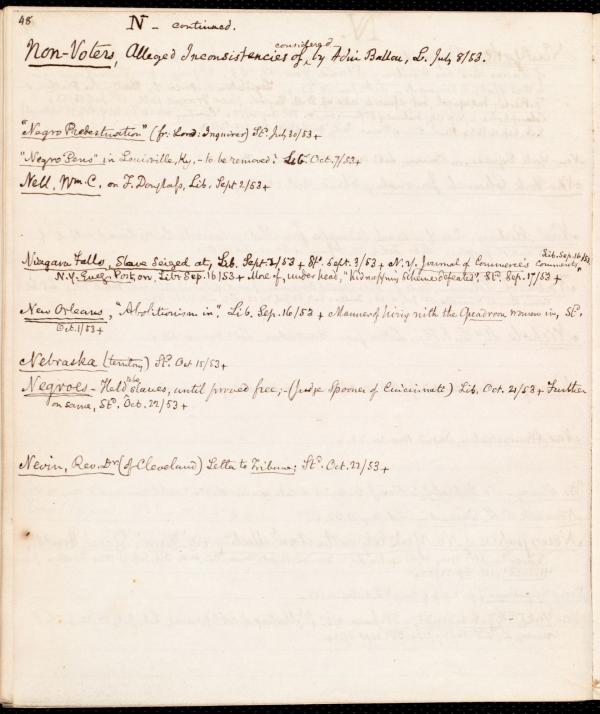 48.
N - continued.
Non-Voters, Alleged Inconsistencies of, considered by Adin Ballou, L. July 8/53.
"Negro Predestination" (fr: Lond: Inquirer) Std. July 30/53 +
"Negro Pens" in Louisville, Ky, - to be removed? Lib. Oct. 7/53 +
Nell, Wm. C. on F. Douglass, Lib. Sept 2/53 +
Niagara Falls, Slave seized at, Lib. Sept. 2/53 + Std. Sept. 3/53 + N.Y. Journal of Commerce's comments, Lib. Sep. 16/53
N.Y. Eveg Post, on, Lib. Sep. 16/53 + More of, under head, "Kidnapping Scheme defeated", Std. Sep. 17/53 +
New Orleans, "Abolitionism in", Lib. Sep. 16/53 + Manner of living with the Quadroon women in, Std.
Oct. 1/53 +
Nebraska (territory) Std. Oct 15/53 +
Negroes - Held to be slaves, until proved free; - (Judge Spooner of Cincinnati) Lib. Oct. 21/53 + Further
on same, Std. Oct. 22/53 +
Nevin, Rev. Dr. (of Cleveland) Letter to Tribune; Std. Oct. 22/53 +